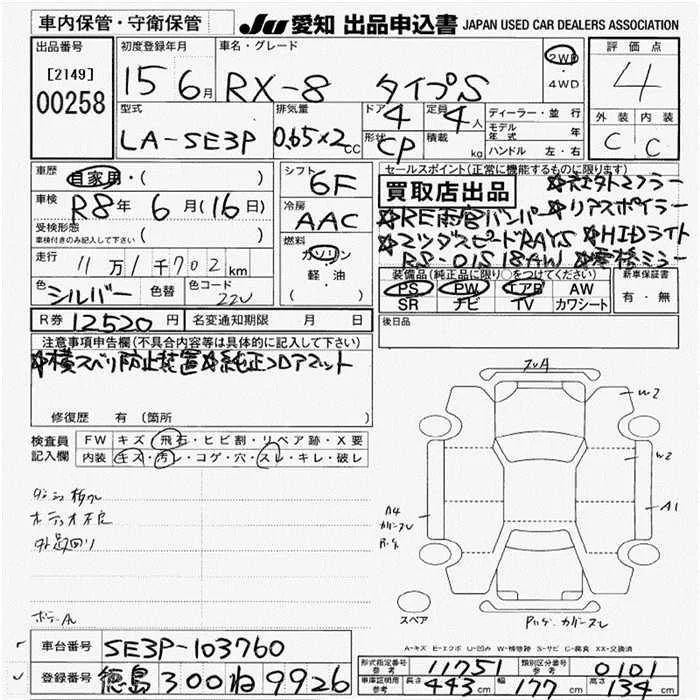 車内保管・守衛保管
JU 愛知 出品申込書 JAPAN USED CAR DEALERS ASSOCIATION
出品番号
[2149]
00258
初度登録年月
15 6月
車名・グレード
RX-8 タイプS
2WD
・
4WD
評価点
4
外装 内装
C C
型式
LA-SE3P
排気量
0.65×2 CC
ドア 4
形状 CP
定員 4人
積載 kg
ディーラー・並行
モデル年式 年
ハンドル 左・右
車歴 自家用・( )
車検 R8年 6月(16日)
受検形態
車検付きのみ記入して下さい ( )
走行 11万1千702km
色 シルバー 色替 色コード 22V
シフト 6F
冷房 AAC
燃料
ガソリン
・
軽・油
( )
セールスポイント(正常に機能するものに限ります)
買取店出品 ☆社外マフラー
☆RE雨宮バンパー ☆リアスポイラー
☆マツダスピードRAYS ☆HIDライト
RS-01S 18AW
装備品(純正品に限り○をつけてください)
PS PW エアB AW
SR ナビ TV カワシート
新車保証書
有・無
R券 12520円 名変通知期限 月 日
後日品
注意事項申告欄(不具合内容等は具体的に記入して下さい)
☆横スベリ防止装置☆純正フロアマット
修復歴 有(箇所
検査員 FW キズ・飛石・ヒビ割・リペア跡・X要
記入欄 内装 キズ・汚レ・コゲ・穴・スレ・キレ・破レ
オーディオ不良
W2
W2
A1
A4
スペア
A-キズ E-エクボ U-凹み W-補修跡 S-サビ C-腐食 XX-交換済
車台番号 SE3P-103760
登録番号 徳島300ね9926
形式指定番号 参考 11751 類別区分番号 参考 0101
車庫証明用 参考 長さ 443cm 幅 177cm 高さ 134cm